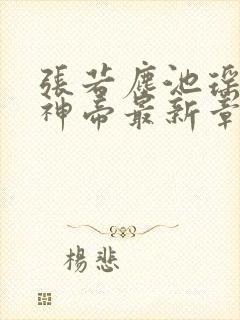 張若塵池瑤
神帝最新章
楊悲